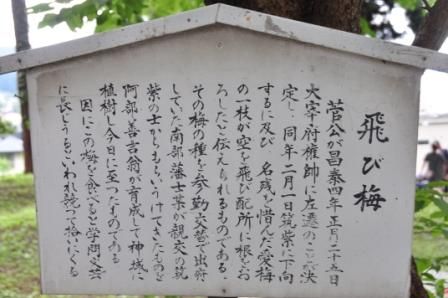 飛び梅
菅公が昌泰四年正月二十五日
大宰府権帥に左遷のことが決
定し、同年二月一日筑紫に下向
するに及び、名残を惜んだ愛梅
の一枝が空を飛び配所に根をお
ろしたと伝えられるものである。
その梅の種を参勤交替で出府
していた南部藩士某が親交の筑
紫の士からもらいうけてきたものを
阿部善吉翁が育成して神域に
植樹し今日に至ったものである
因にこの梅を食べると学問文芸
に長じうるといわれ競って拾いにくる